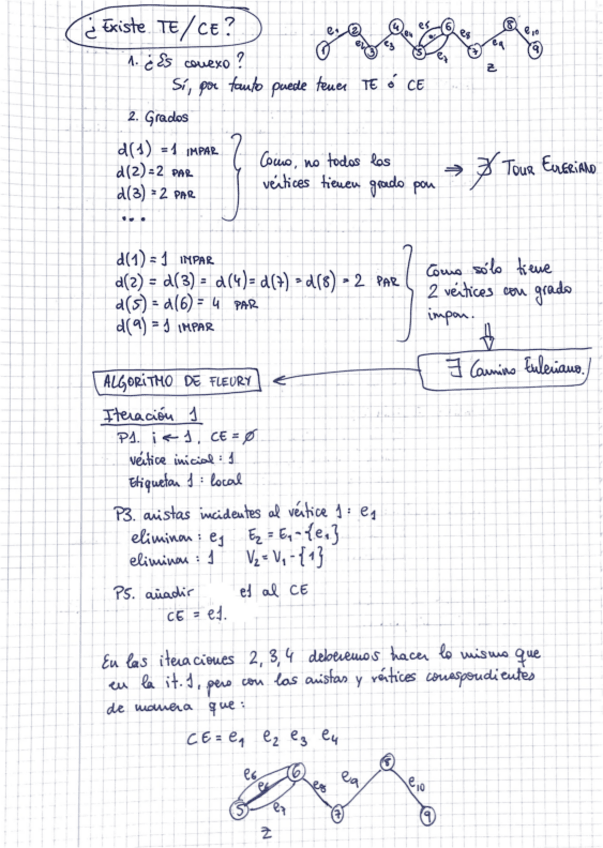 ¿Existe TE/CE?
e1 e2 e3 e4 e5 e6 e7 e8 e9 e10
1 2 3 4 5 6 7 8 9
Z
1. ¿Es conexo?
Sí, por tanto puede tener TE ó CE
2. Grados
d(1) = 1 IMPAR
d(2) = 2 PAR
d(3) = 2 PAR
...
Como, no todos los
vértices tienen grado par ⇒ ∄ TOUR EULERIANO
d(1) = 1 IMPAR
d(2) = d(3) = d(4) = d(7) = d(8) = 2 PAR
d(5) = d(6) = 4 PAR
d(9) = 1 IMPAR
Como sólo tiene
2 vértices con grado
impar.
∃ Camino Euleriano.
ALGORITMO DE FLEURY
Iteración 1
P1. i ← 1, CE = ∅
vértice inicial: 1
Etiquetar 1: local
P3. aristas incidentes al vértice 1: e1
eliminar: e1 E2 = E1 - {e1}
eliminar: 1 V2 = V1 - {1}
P5. añadir e1 al CE
CE = e1.
En las iteraciones 2, 3, 4 deberemos hacer lo mismo que
en la it. 1, pero con las aristas y vértices correspondientes
de manera que:
CE = e1 e2 e3 e4
e6 e7 e8 e9 e10
5 6 7 8 9
Z